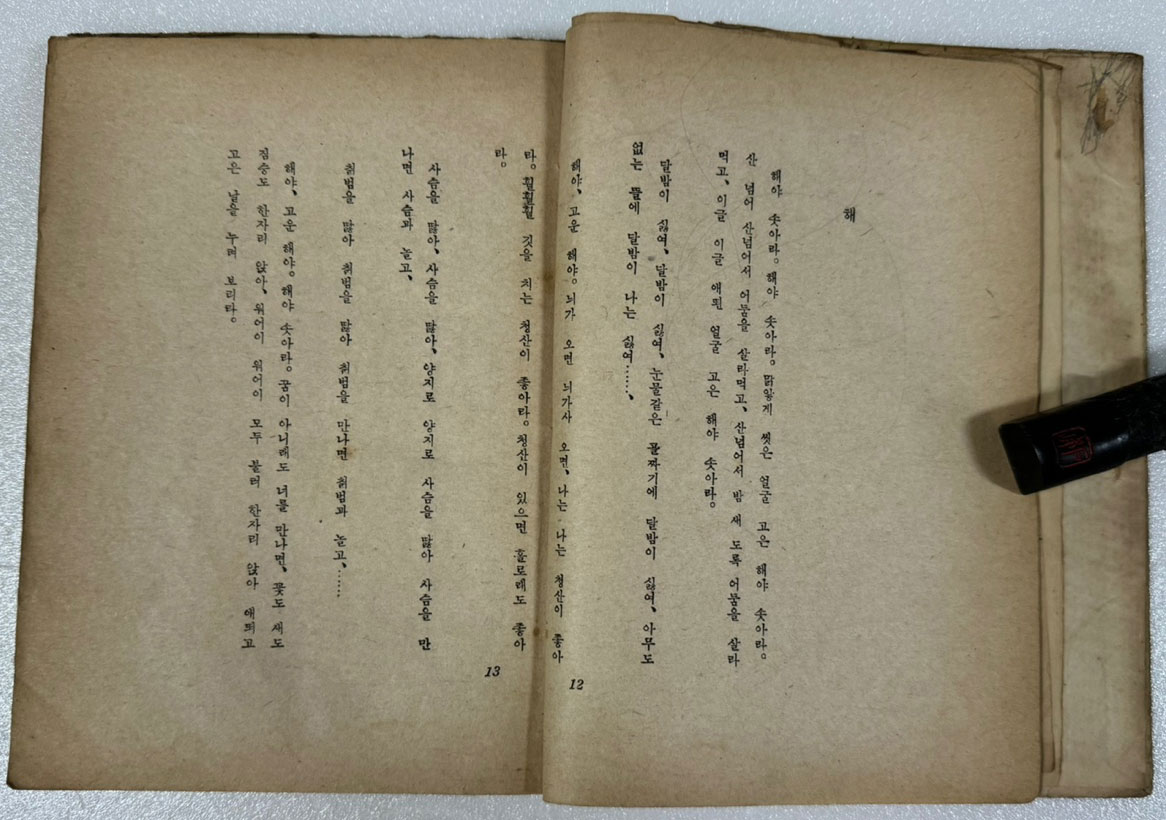 해
해야 솟아라。해야 솟아라。맑앟게 씻은 얼굴 고은 해야 솟아라。
산 넘어 산넘어서 어둠을 살라먹고、산넘어서 밤 새 도록 어둠을 살라
먹고、이글 이글 애띈 얼굴 고은 해야 솟아라。
달밤이 싫여、달밤이 싫여、눈물같은 골짜기에 달밤이 싫여、아무도
없는 뜰에 달밤이 나는 싫여……、
해야、고운 해야。늬가 오면 늬가사 오면、나는 나는 청산이 좋아
12
라。훨훨훨 깃을 치는 청산이 좋아라。청산이 있으면 홀로래도 좋아
라。
사슴을 딿아、사슴을 딿아、양지로 양지로 사슴을 딿아 사슴을 만
나면 사슴과 놀고、
칡범을 딿아 칡범을 딿아 칡범을 만나면 칡범과 놀고、……
해야、고운 해야。해야 솟아라。꿈이 아니래도 너를 만나면、꽃도 새도
짐승도 한자리 앉아、워어이 워어이 모두 불러 한자리 앉아 애띄고
고은 날을 누려 보리라。
13